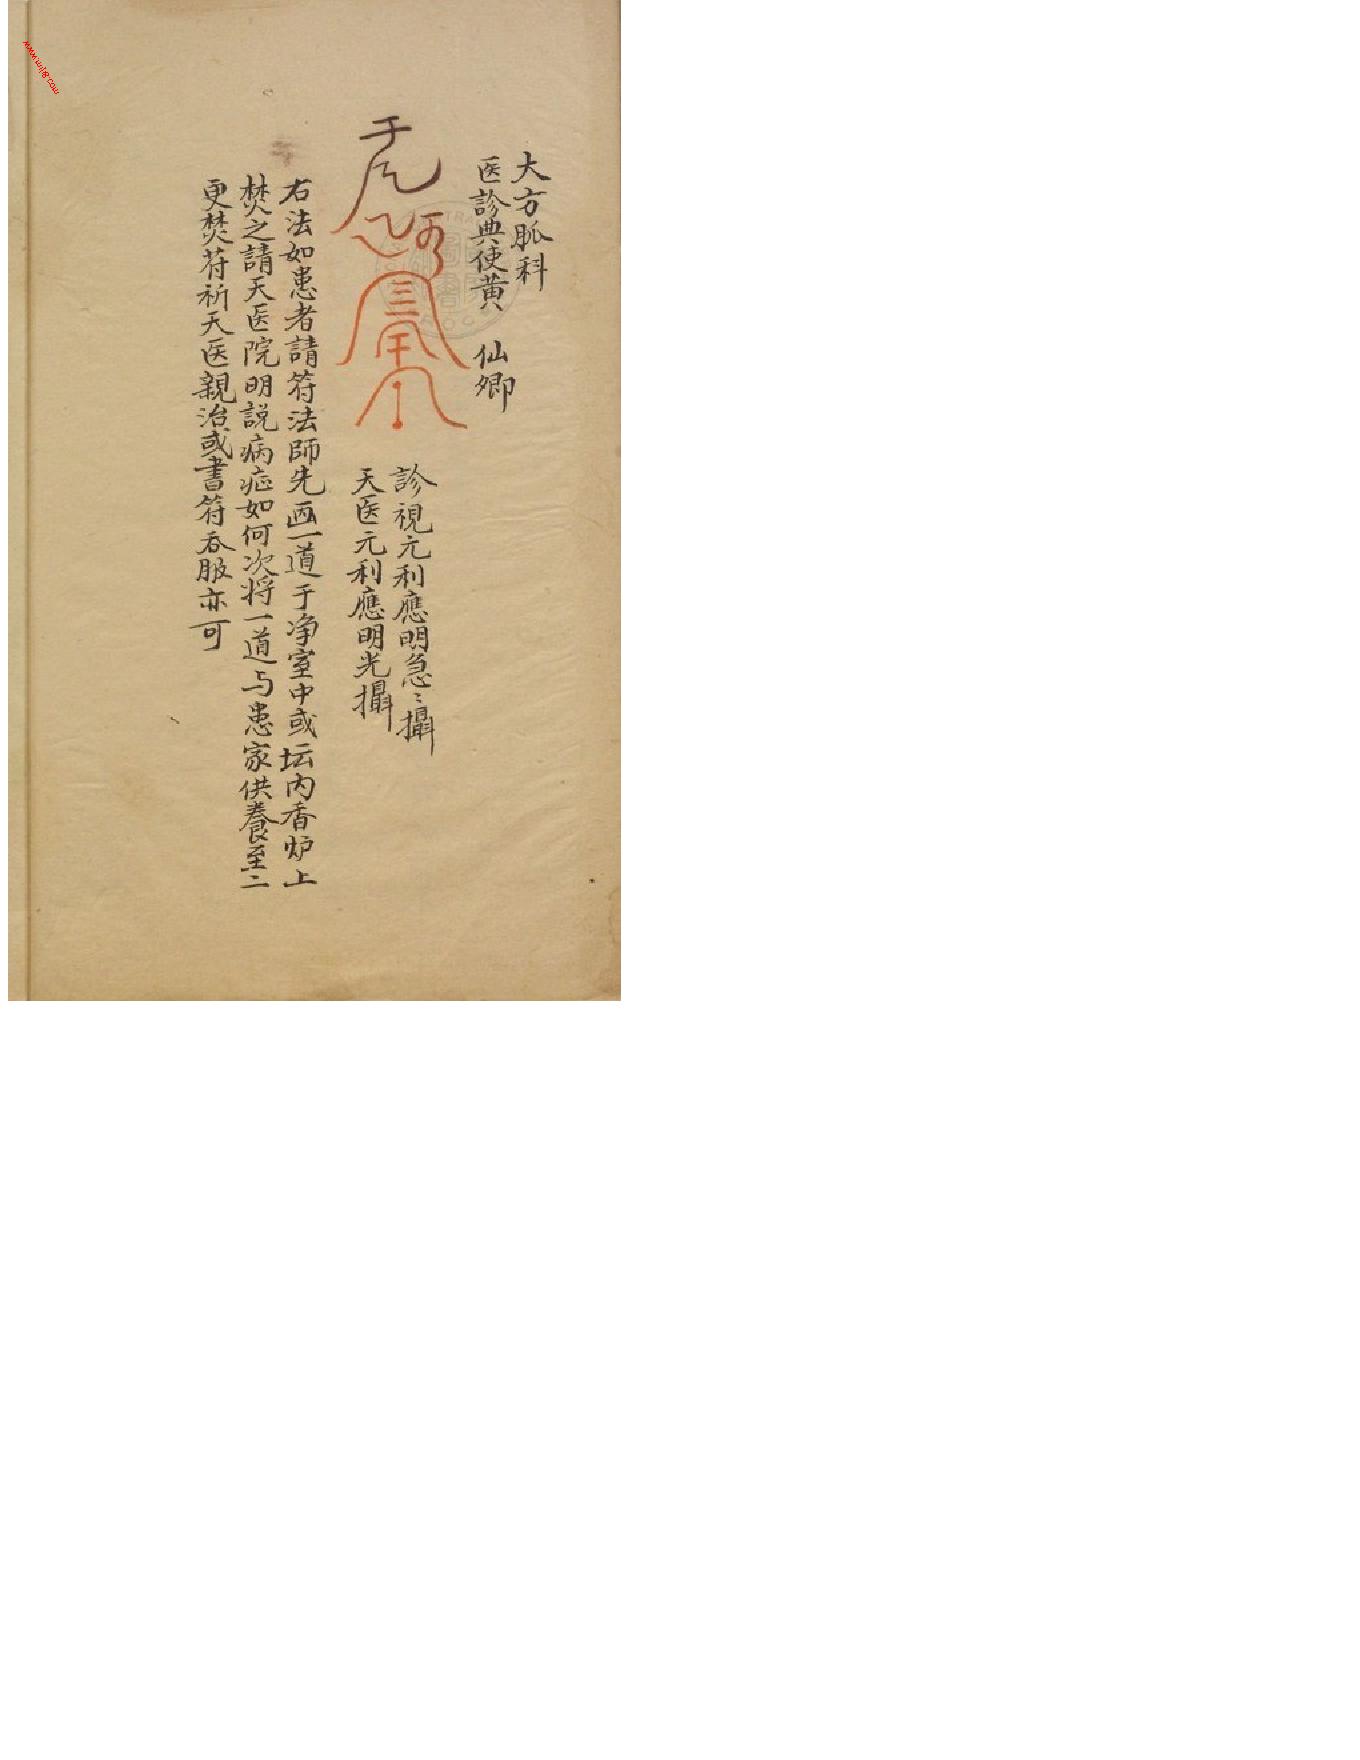 大方脈科
医診典使黄 仙卿
診視元利應明急〻攝
天医元利應明光攝
右法如患者請符法師先画一道于净室中或坛内香炉上
焚之請天医院明説病症如何次将一道与患家供養至二
更焚符祈天医親治或書符吞服亦可
www.mlfg.com